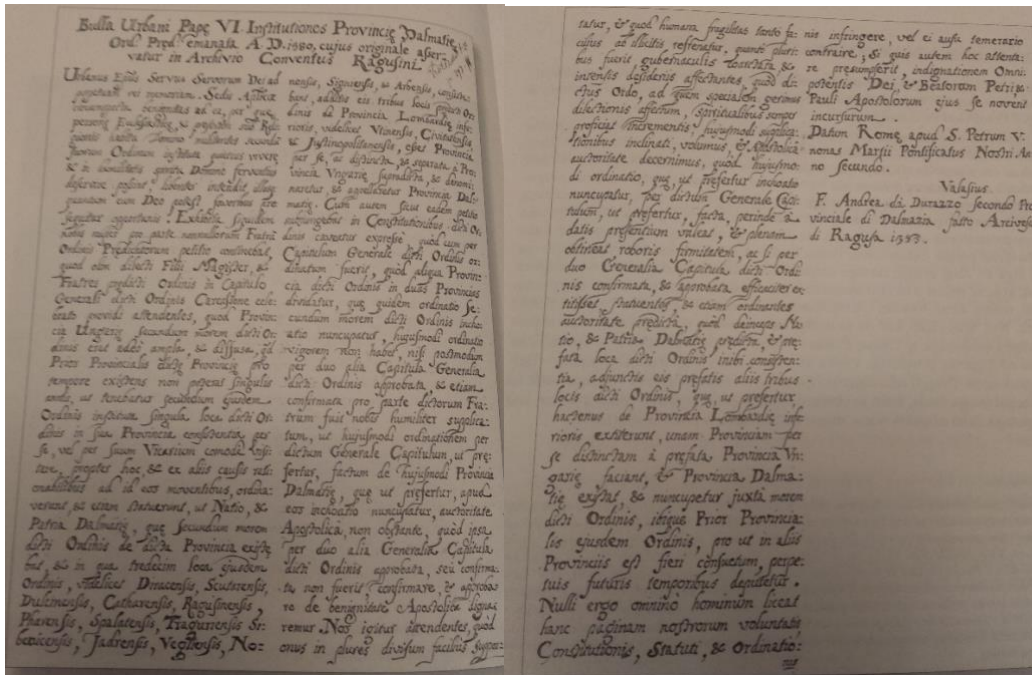 Bulla Urbani Papę VI. Institutiones Provincię Dalmatię
Ord. Pręd. emanata A. D. 1380, cujus originale aser-
vatur in Archivio Conventus Ragusini.
Urbanus Epus Servus Servorum Dei ad
perpetuam rei memoriam. Sedis Aplicę
benignitas ad ea, per quę
personę Ecclesiasticę, & presertim sub Reli-
gionis
sacrorum Ordinum institutę quietius vivere
& in humilitatis spiritu Domino ferventius
deservire possint, libenter intendit, illaque
quantum cum Deo potest favoribus pro-
sequitur opportunis. Exhibita siquidem
nobis nuper pro parte nonnullorum Fratrũ
Ordinis Pręedicatorum petitio continebat,
quod olim dilecti Filii Magister, &
Fratres prędicti Ordinis in Capitulo
Generali dicti Ordinis Carcassone cele-
brato provide attendentes, quod Provin-
cia Ungarię secundum morem dicti Or-
dinis erat adeo ampla, & diffusa, qd
Prior Provincialis dictę Provincię pro
tempore existens non poterat singulis
annis, ut tenebatur secundum ejusdem
Ordinis instituta singula loca dicti Or-
dinis in sua Provincia consistentia per
se, vel per suum Vicarium comode visi-
tare, propter hoc, & ex aliis causis rati-
onabilibus ad id eos moventibus, ordina-
verunt & etiam statuerunt, ut Natio, &
Patria Dalmatię, quę secundum morem
dicti Ordinis de dicta Provincia existe-
bat, & in qua tredecim loca ejusdem
Ordinis, videlicet Diracensis, Scutarensis,
Dulcinensis, Catharensis, Ragusinensis,
Pharensis, Spalatensis, Traguriensis Si-
benicensis, Jadrensis, Vegliensis, No-
nensis, Signiensis, & Arbensis, consiste-
bant, additis eis tribus locis prędicti Or-
dinis de Provincia Lombardię infe-
rioris, videlicet Utinensis, Civitatensis,
& Justinopolitanensis, esset Provincia
per se, ac distincta, & separata a Pro-
vincia Ungarię supradicta, & denomi-
naretur, & appellaretur Provincia Dal-
matię. Cum autem sicut eadem petitio
subjungebat in Constitutionibus dicti Or-
dinis caveatur expresse quod cum per
Capitulum Generale dicti Ordinis or-
dinatum fuerit, quod aliqua Provin-
cia dicti Ordinis in duas Provincias
dividatur, quę quidem ordinatio se-
cundum morem dicti Ordinis incho-
atio nuncupatur, hujusmodi ordinatio
vigorem non habet, nisi postmodum
per duo alia Capitula Generalia
dicti Ordinis approbata, & etiam
confirmata pro parte dictorum Fra-
trum fuit nobis humiliter supplica-
tum, ut hujusmodi ordinationem per
dictum Generale Capitulum, ut prę-
fertur, factum de hujusmodi Provincia
Dalmatię, quę ut pręfertur, apud
eos inchoatio nuncupatur, auctoritate
Apostolica, non obstante, quod ipsa
per duo alia Generalia Capitula
dicti Ordinis approbata, seu confirma-
ta non fuerit confirmare, & approba-
re de benignitate Apostolica digna-
remur. Nos igitur attendentes, quod
onus in plures divisum facilius suppor-
tatur, & quod humana fragilitas tanto fa-
cilius ab illicitis refrenatur, quanto pluri-
bus fuerit gubernaculis & in-
intensis desideriis affectantes, quod di-
ctus Ordo, ad quem specialem gerimus
dilectionis affectum, spiritualibus semper
proficiat incrementis hujusmodi supplica-
tionibus inclinati, volumus, & Apostolica
auctoritate decernimus, quod hujusmo-
di ordinatio, quę, ut pręfertur inchoatio
nuncupatur, per dictum Generale Capi-
tulum, ut pręfertur, facta, perinde a
datis pręsentium valeat, & plenam
obtineat roboris firmitatem, ac si per
duo Generalia Capitula dicti Ordi-
nis confirmata, & approbata efficaciter ex-
titisset, statuentes, & etiam ordinantes
auctoritate prędicta, quod deinceps Na-
tio, & Patria Dalmatię prędicta, & prę-
fata loca dicti Ordinis inibi consisten-
tia, adjunctis eis pręfatis aliis tribus
locis dicti Ordinis, quę, ut pręfertur,
hactenus de Provincia Lombardię infe-
rioris, extiterunt, unam Provinciam per
se distinctam à pręfata Provincia Un-
garię faciant, & Provincia Dalma-
tię existat, & nuncupetur juxta morem
dicti Ordinis, ibique Prior Provincia-
lis ejusdem Ordinis, pro ut in aliis
Provinciis est fieri consuetum, perpe-
tuis futuris temporibus deputetur.
Nulli ergo omnino hominum liceat
hanc paginam nostrorum voluntatis
Constitutionis, Statuti, & Ordinatio-
nis
nis infringere, vel ei ausu temerario
contraire, Si quis autem hoc attenta-
re pręsumpserit, indignationem Omni-
potentis Dei, & Beatorum Petri, &
Pauli Apostolorum ejus se noverit
incursurum.
Datum Romę apud S. Petrum V.
nonas Martii Pontificatus Nostri An-
no secundo.
Valasius
F. Andrea di Durazzo secondo Pro-
vinciale di Dalmazia fatto Arcivesc.
di Ragusa 1383.